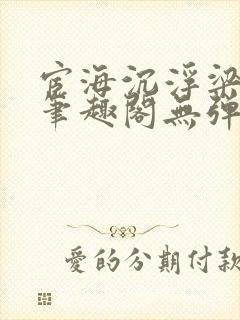 宦海沉浮梁
笔趣阁無弹
愛的分期付款